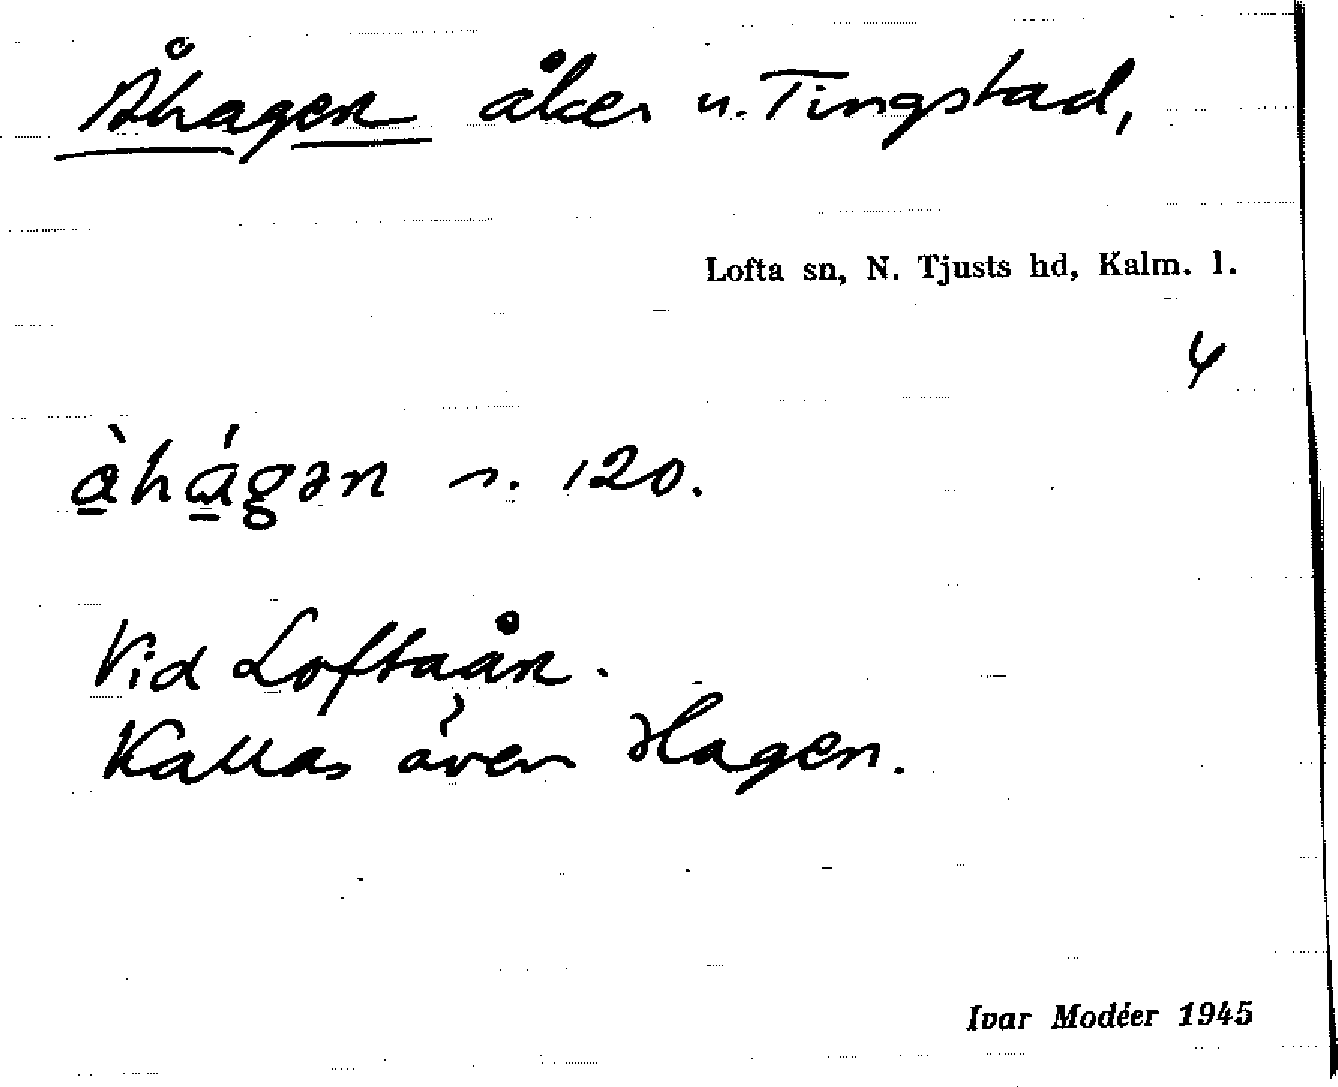 Åhagen åker u. Tingstad,
Lofta sn, N. Tjusts hd, Kalm. l.
4
å̱̀há̱gən n. 120.
Vid Loftaån.
Kallas även Hagen.
Ivar Modéer 1945